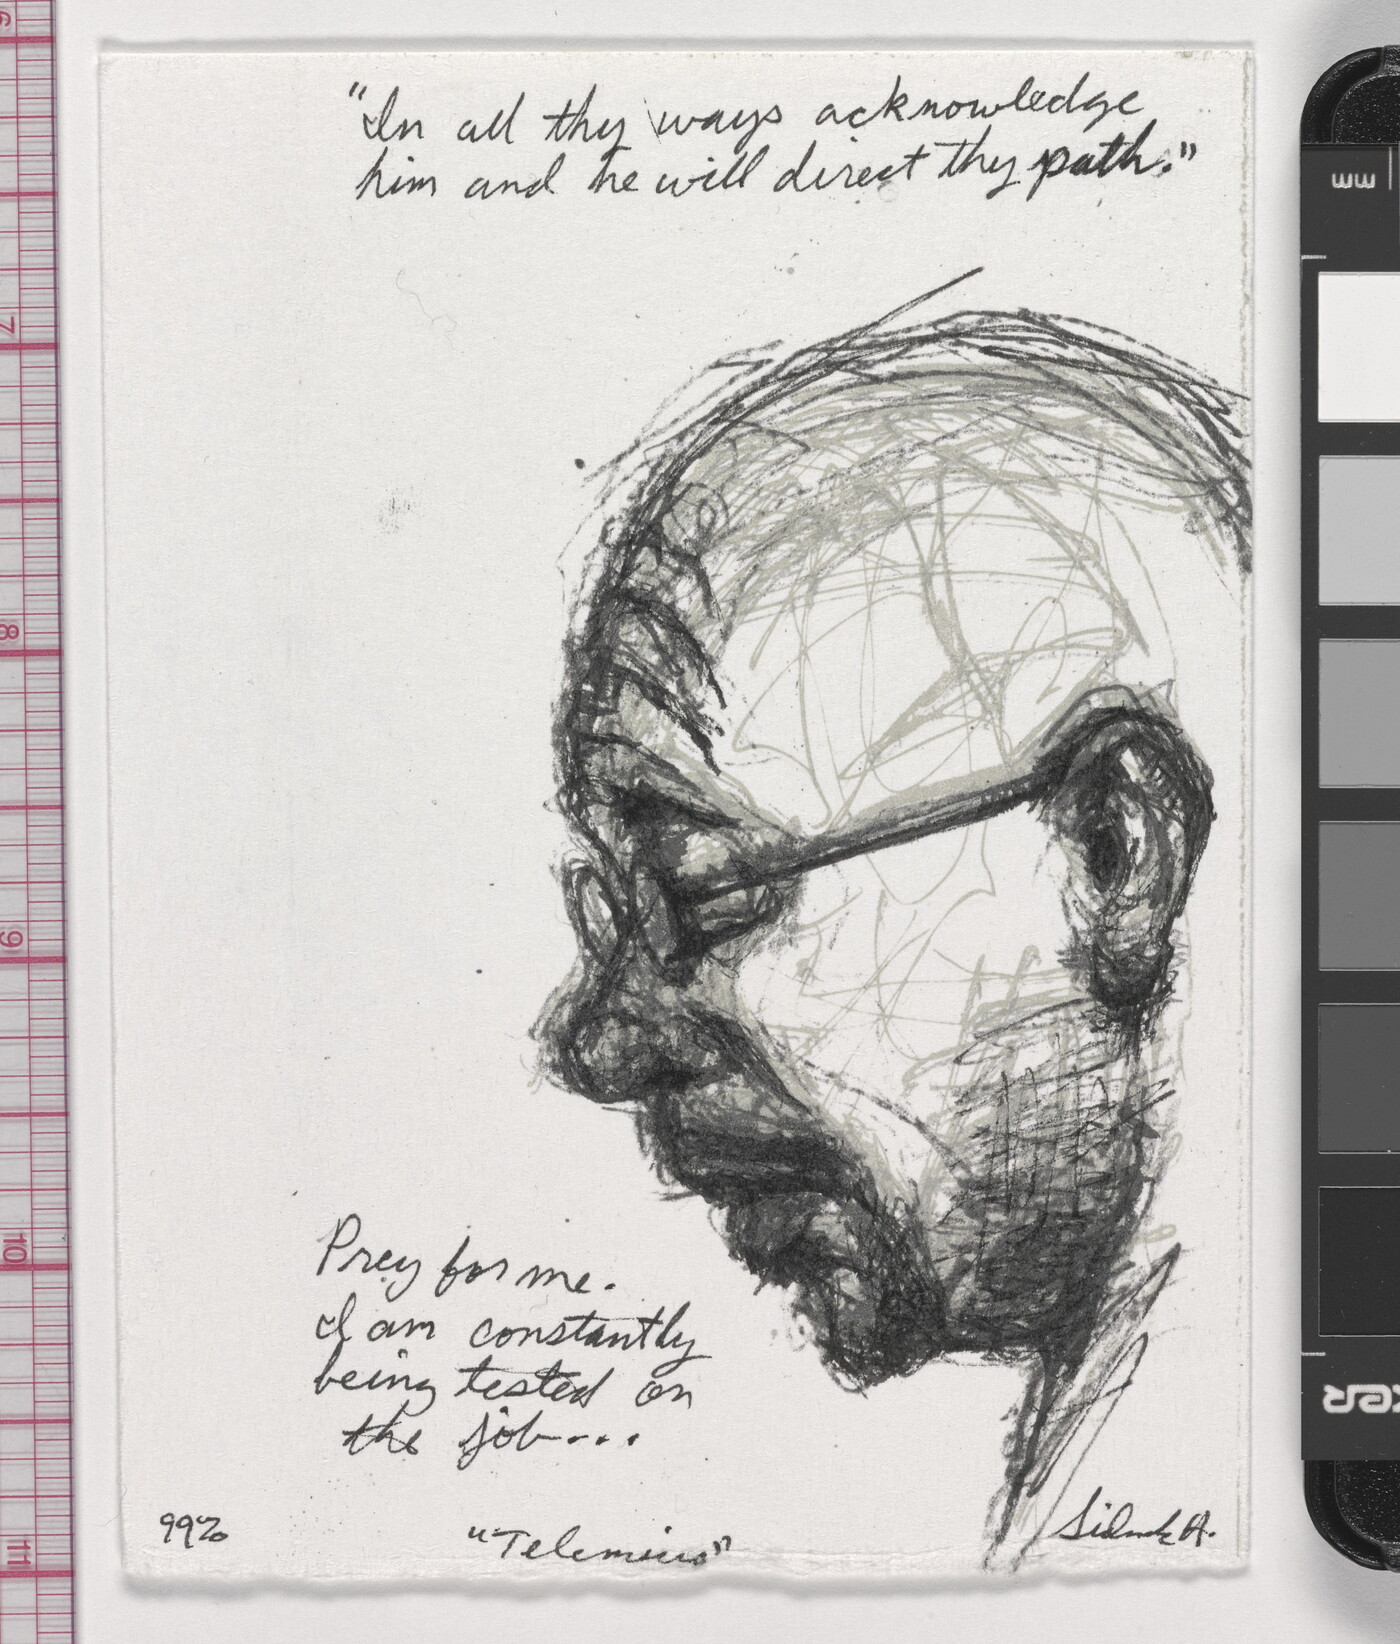 "In all thy ways acknowledge
him and he will direct thy path."
Pray for me.
I am constantly
being tested on
the job...
99%
6
7
8
9
10
11
mm